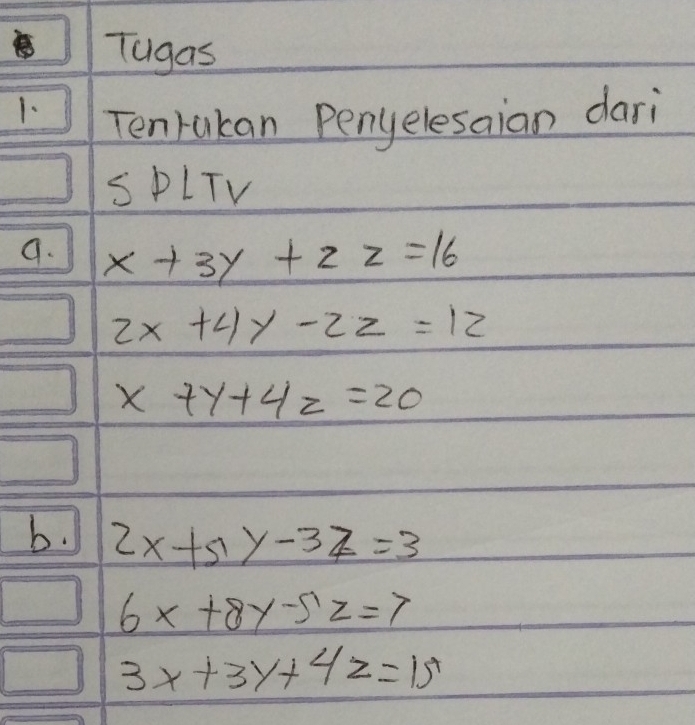 Tugas
1. Tentukan Penyelesaian dari
SPLTV
a. x + 3y + 2z = 16
2x + 4y - 2z = 12
x + y + 4z = 20
b. 2x + 5y - 3z = 3
6x + 8y - 5z = 7
3x + 3y + 4z = 15